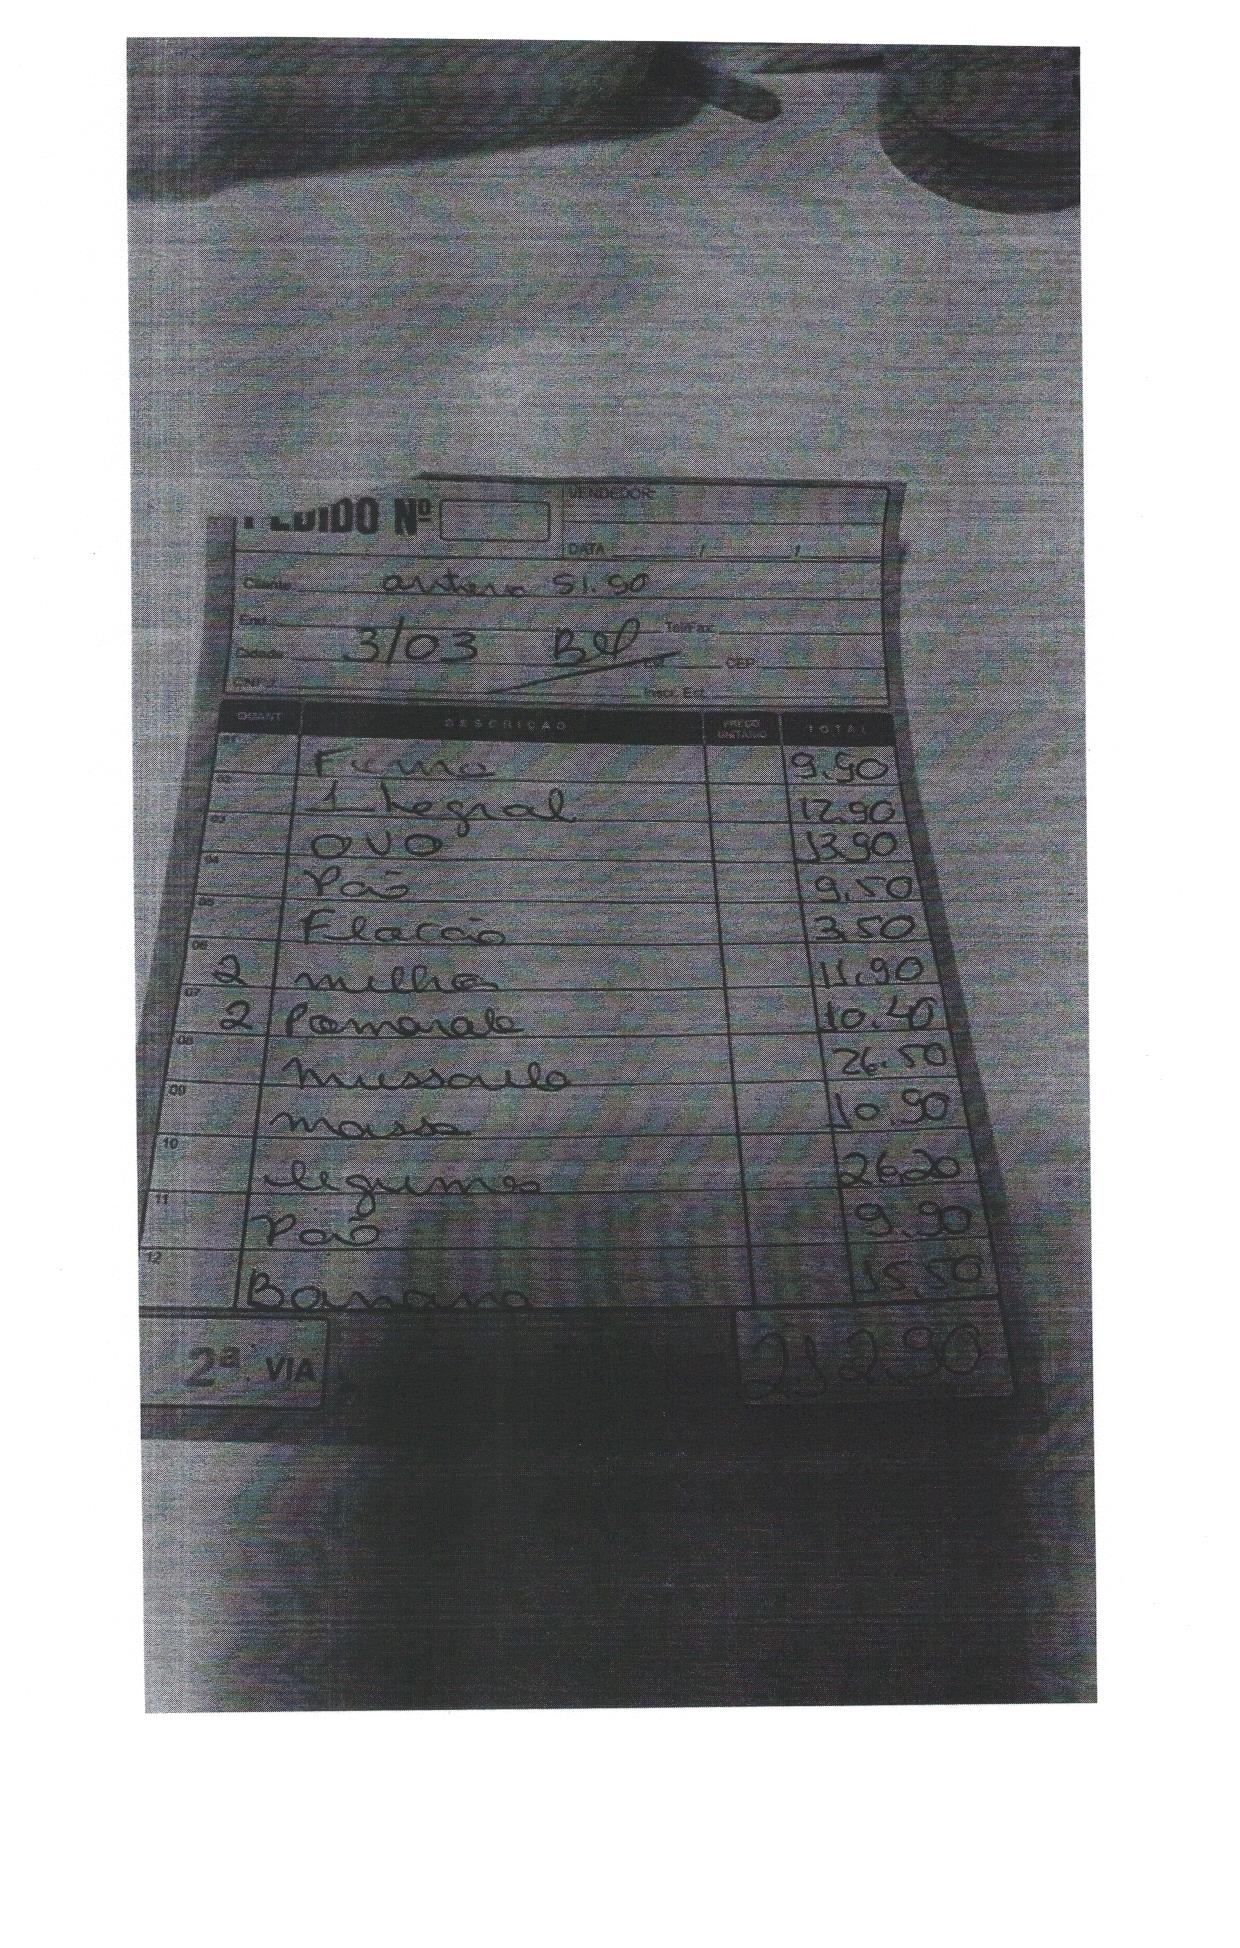 PEDIDO Nº
VENDEDOR:
DATA / /
Cliente antero 51.90
End. Tel/Fax:
Cidade 3/03 Bel Est. CEP
CNPJ Inscr. Est.
QUANT. DESCRIÇÃO PREÇO UNITÁRIO TOTAL
01 9.90
02 Integral 12.90
03 OVO 13.90
04 Pão 9.50
05 3.50
06 2 milho 11.90
07 2 Pomarola 10.40
08 mussarela 26.50
09 massa 10.90
10 legumes 26.20
11 Pão 9.90
12 Banana 15.50
2ª. VIA 212.90